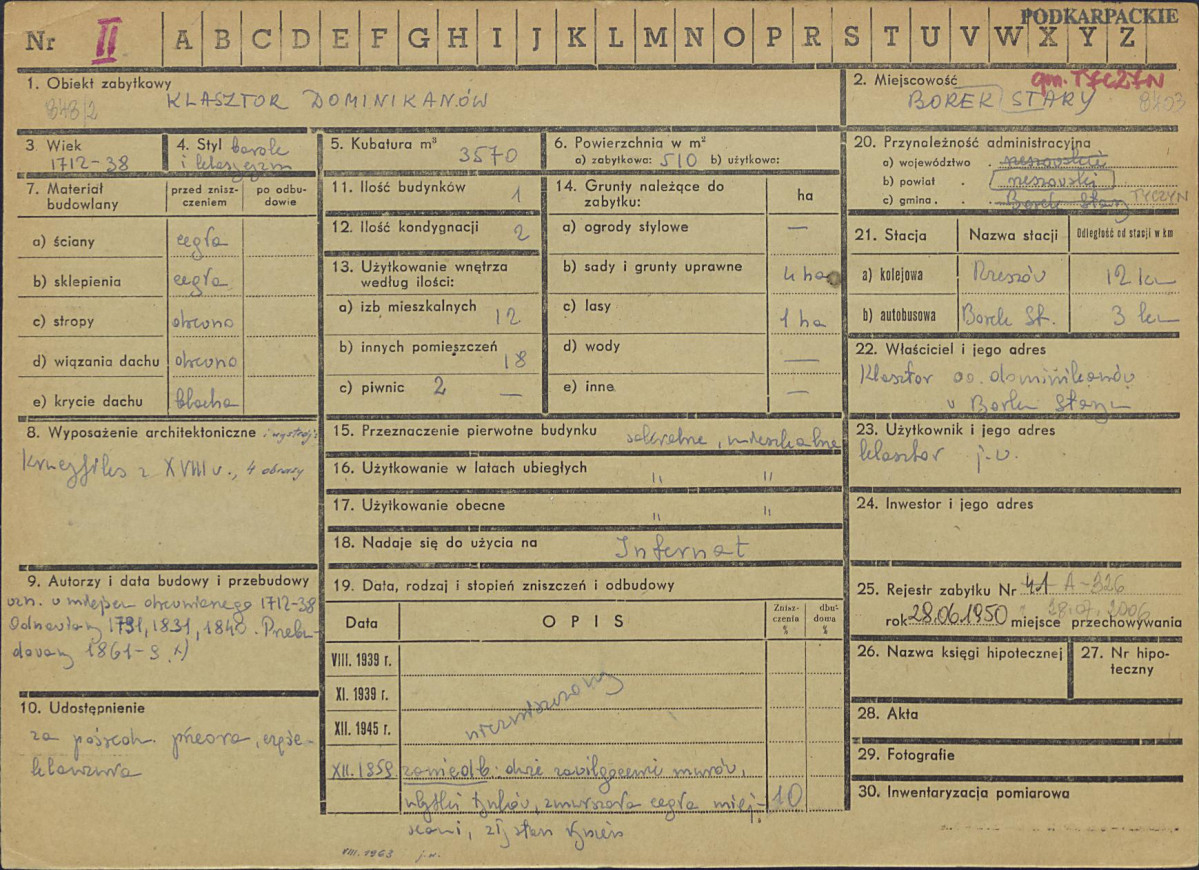 PODKARPACKIE
Nr II A B C D E F G H I J K L M N O P R S T U V W X Y Z
1. Obiekt zabytkowy
848/2
KLASZTOR DOMINIKANÓW
2. Miejscowość
gm. TYCZYN
BOREK STARY
3. Wiek
1712-38
4. Styl barok
i klasycyzm
5. Kubatura m³ 3570
6. Powierzchnia w m²
a) zabytkowa: 510 b) użytkowa:
7. Materiał budowlany
przed zniszczeniem
po odbudowie
a) ściany cegła
b) sklepienia cegła
c) stropy drewno
d) wiązania dachu drewno
e) krycie dachu blacha
8. Wyposażenie architektoniczne i wystrój:
Krucyfiks z XVIII w., 4 obrazy
9. Autorzy i data budowy i przebudowy
wzn. w miejscu drewnianego 1712-38
Odnawiany 1791, 1831, 1840. Przebu-
dowany 1861-9. x)
10. Udostępnienie
za pośredn. przeora, częśc.
klauzura
11. Ilość budynków 1
12. Ilość kondygnacji 2
13. Użytkowanie wnętrza
według ilości:
a) izb mieszkalnych 12
b) innych pomieszczeń 18
c) piwnic 2 —
14. Grunty należące do
zabytku:
ha
a) ogrody stylowe —
b) sady i grunty uprawne 4 ha
c) lasy 1 ha
d) wody —
e) inne —
15. Przeznaczenie pierwotne budynku sakralne, mieszkalne
16. Użytkowanie w latach ubiegłych " "
17. Użytkowanie obecne " "
18. Nadaje się do użycia na Internat
19. Data, rodzaj i stopień zniszczeń i odbudowy
Data
OPIS
Zniszczenia %
dbudoma %
VIII. 1939 r.
XI. 1939 r.
XII. 1945 r.
niezniszczony
XII. 1959 zaniedb. duże zawilgocenie murów,
ubytki tynków, zmurszała cegła miej- 10
scami, zły stan rynien
VIII. 1963 j.w.
20. Przynależność administracyjna
a) województwo rzeszowskie
b) powiat rzeszowski
c) gmina Borek Stary TYCZYN
21. Stacja
Nazwa stacji
Odległość od stacji w km
a) kolejowa Rzeszów 12 km
b) autobusowa Borek St. 3 km
22. Właściciel i jego adres
Klasztor oo. dominikanów
w Borku Starym
23. Użytkownik i jego adres
klasztor j.w.
24. Inwestor i jego adres
25. Rejestr zabytku Nr 41 A-326
rok 28.06.1950 miejsce przechowywania
26. Nazwa księgi hipotecznej
27. Nr hipo-
teczny
28. Akta
29. Fotografie
30. Inwentaryzacja pomiarowa